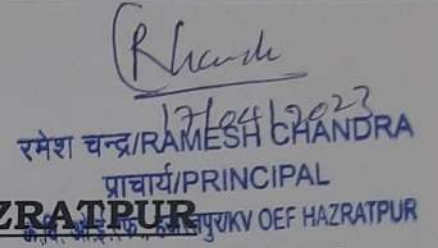 RChandr
17/04/2023
रमेश चन्द्र/RAMESH CHANDRA
प्राचार्य/PRINCIPAL
ZRATPUR
के.वि. ओ.ई.एफ. हजरतपुर/KV OEF HAZRATPUR